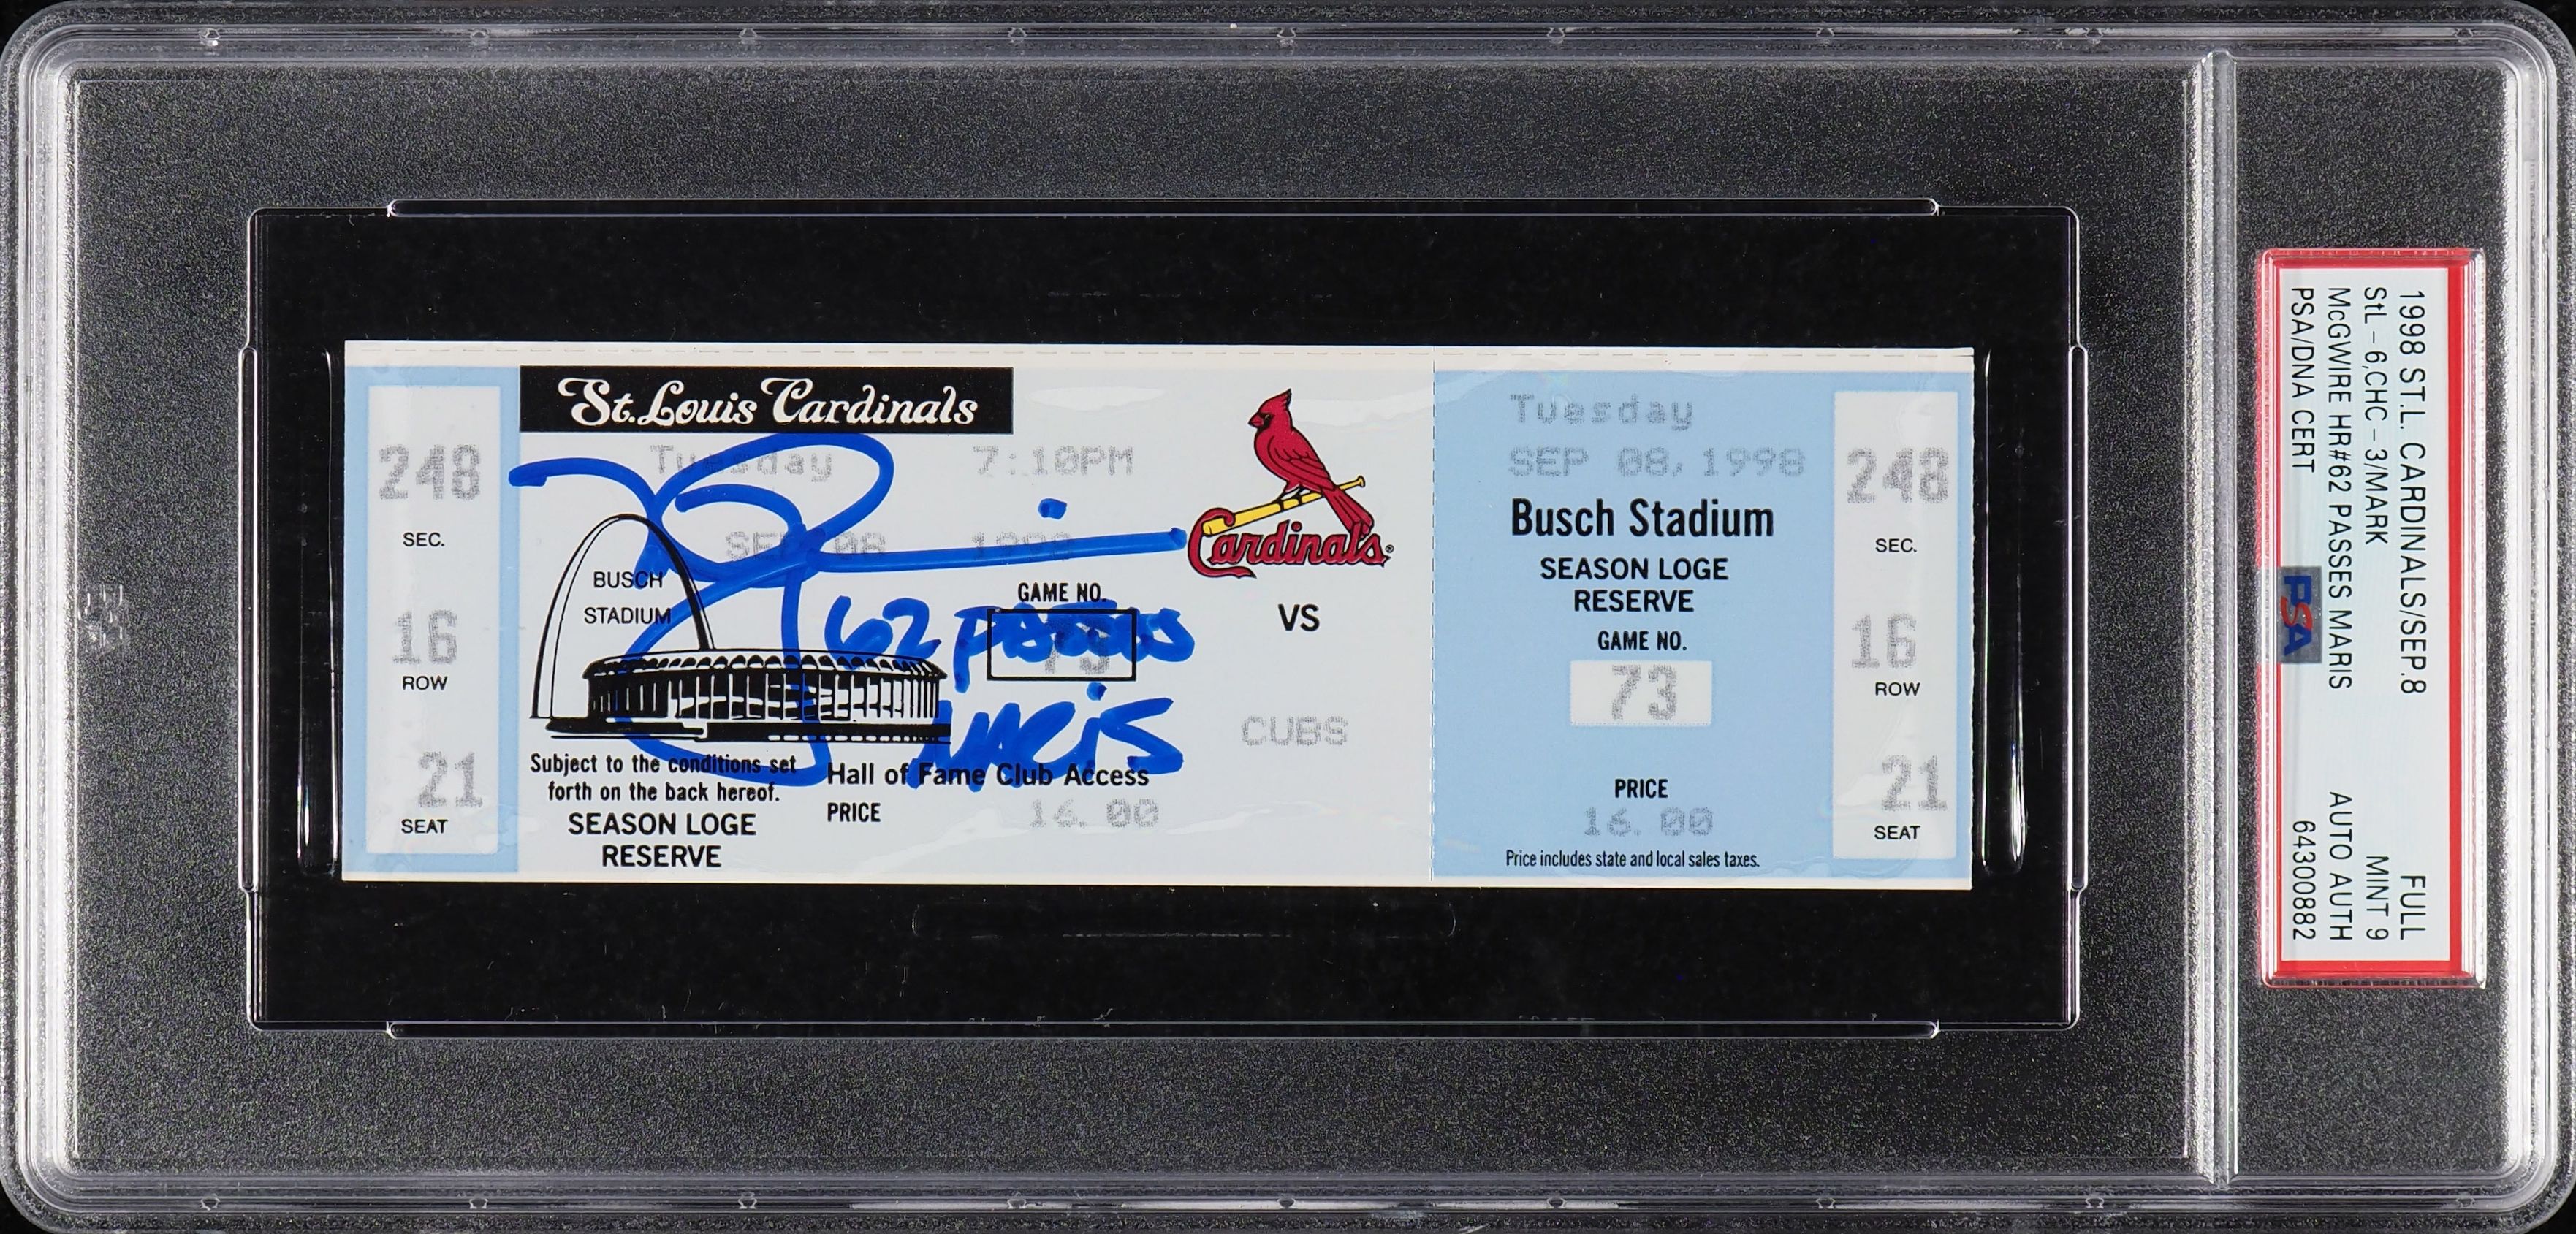 St. Louis Cardinals
248
SEC.
16
ROW
21
SEAT
Tuesday 7:10PM
SEP 08 1998
BUSCH
STADIUM
GAME NO.
73
62 PASSES
MARIS
Subject to the conditions set
forth on the back hereof.
SEASON LOGE
RESERVE
Hall of Fame Club Access
PRICE
16.00
Cardinals
VS
CUBS
Tuesday
SEP 08, 1998
Busch Stadium
SEASON LOGE
RESERVE
GAME NO.
73
PRICE
16.00
Price includes state and local sales taxes.
248
SEC.
16
ROW
21
SEAT
1998 ST.L. CARDINALS/SEP.8 FULL
StL - 6,CHC - 3/MARK MINT 9
McGWIRE HR#62 PASSES MARIS AUTO AUTH
PSA/DNA CERT 64300882
PSA